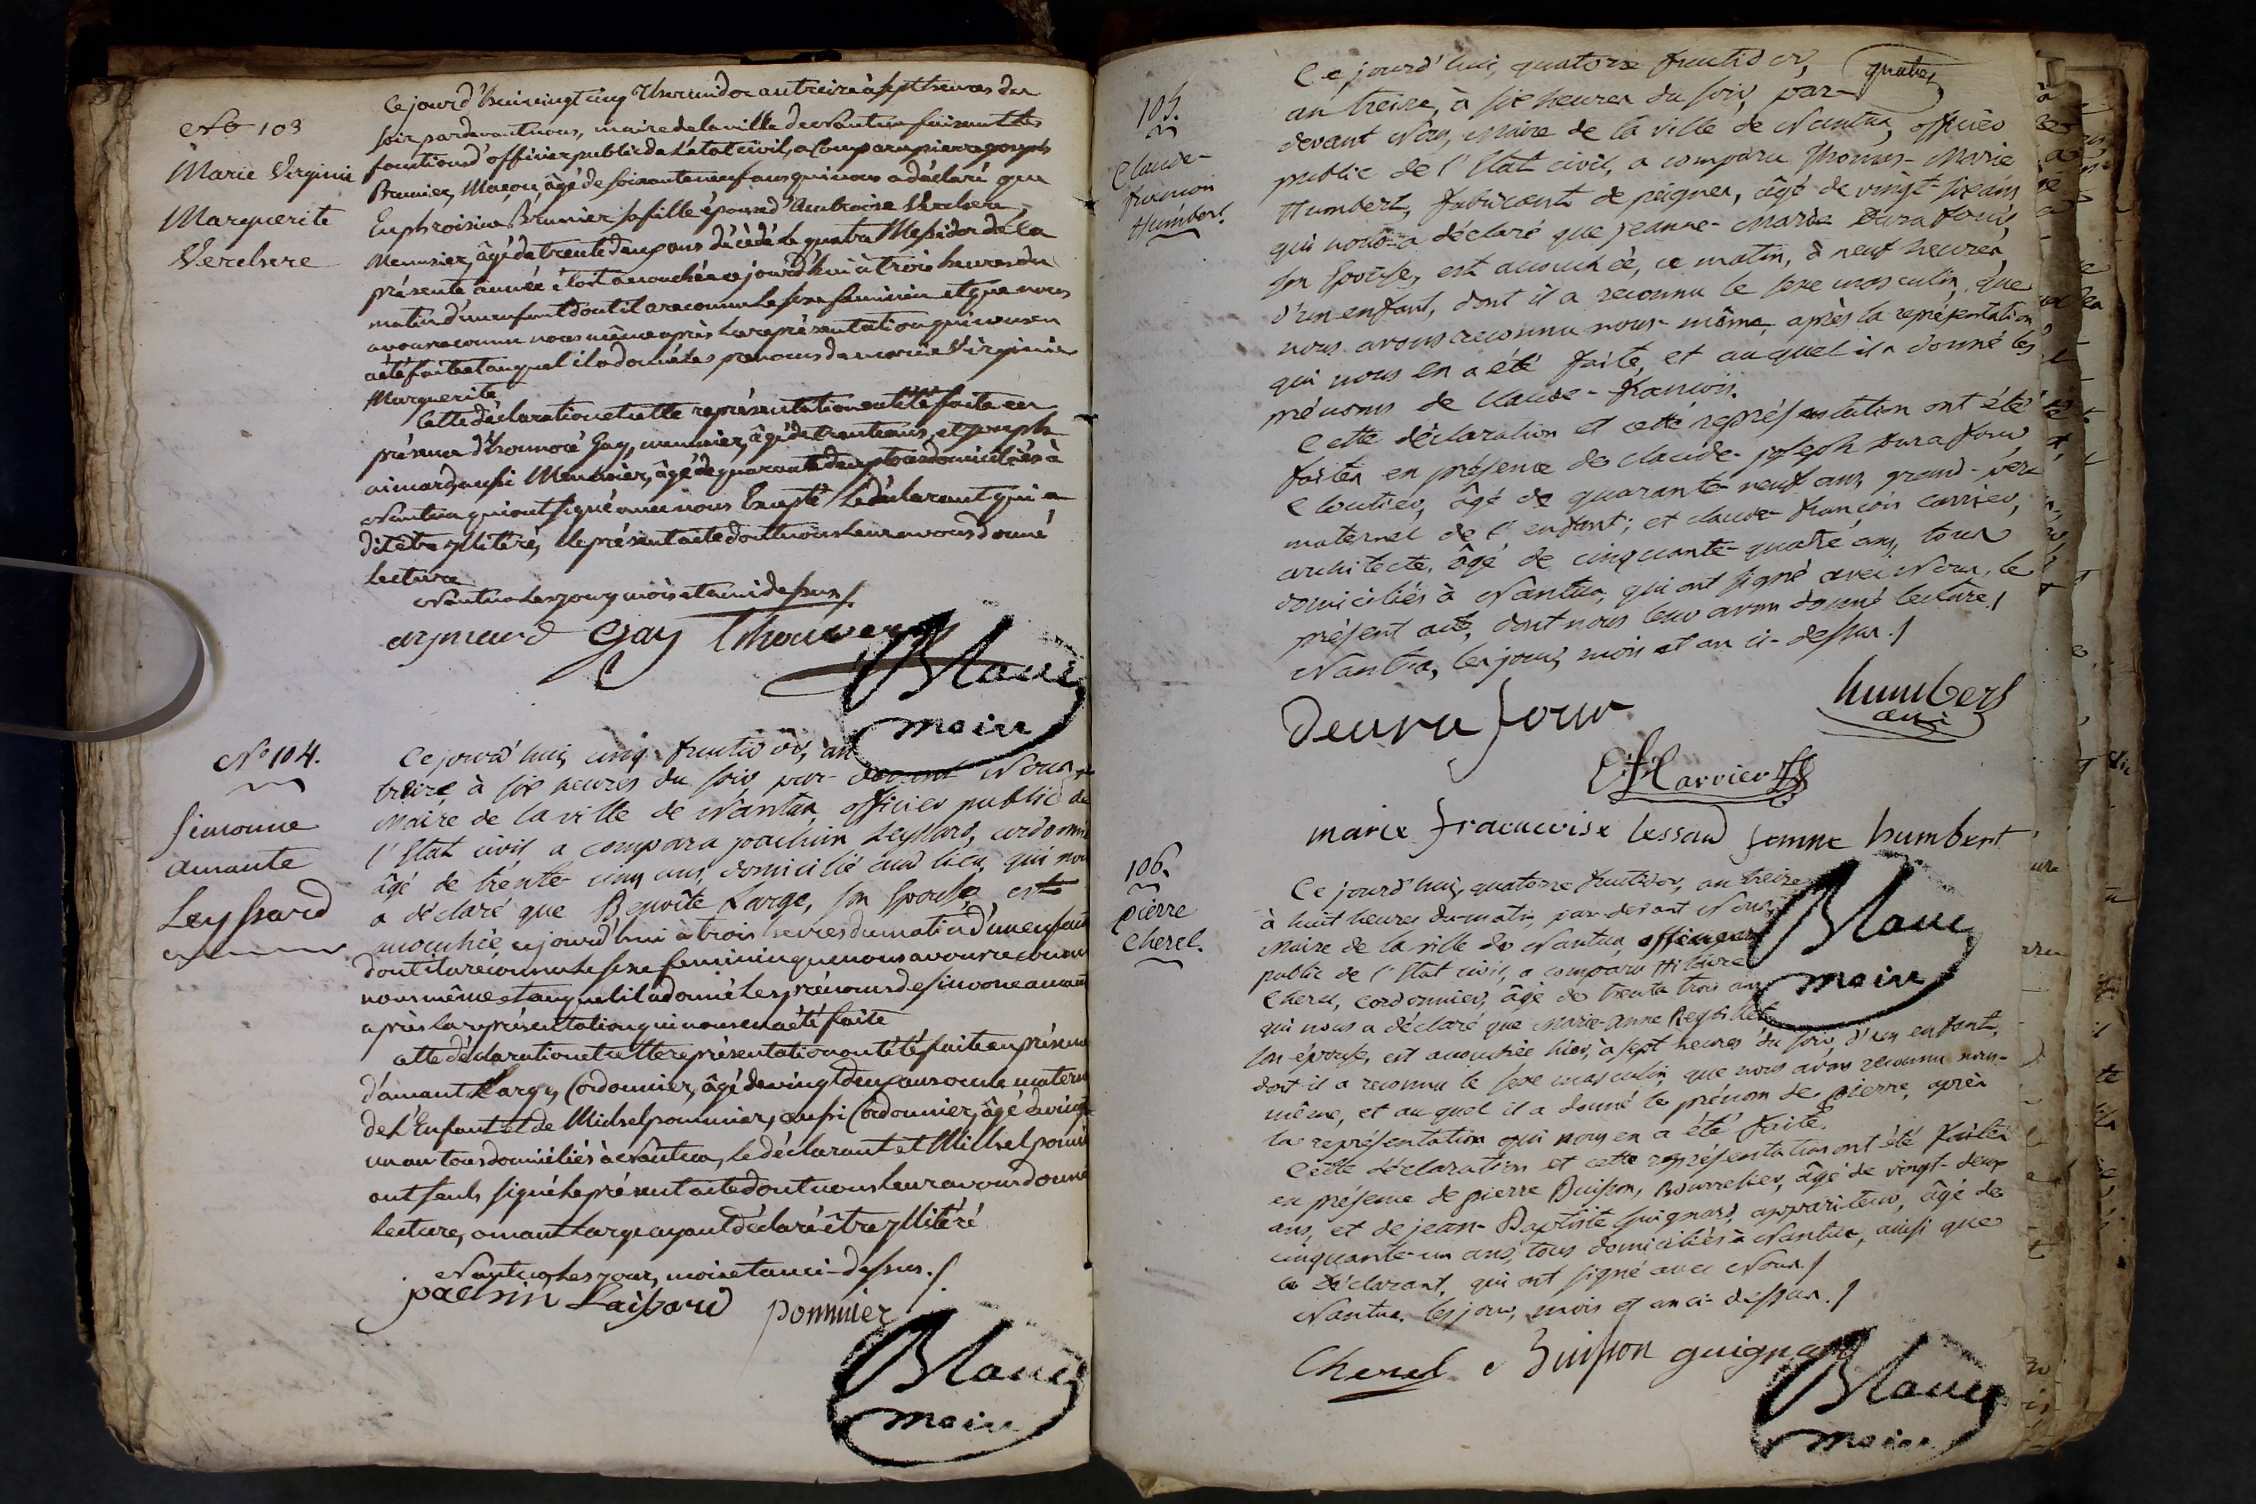 No 103
Marie Virginie
Marguerite
Verchere
Ce jourd'hui vingt cinq Thermidor an treize à sept heures du
soir pardevant nous, maire de la ville de Nantua faisant les
fonctions d'officier public de l'état civil, a comparu pierre joseph
Brunier, Maçon, âgé de soixante neuf ans qui nous a déclaré que
Euphroisine Brunier sa fille épouse d'Ambroise Verchere
Menuisier, âgé de trente deux ans décédé le quatre Messidor de la
présente année étoit accouchée ce jourd'hui à trois heures du
matin d'un enfant dont il a reconnu le sexe feminin et que nous
avons reconnu nous même après la représentation qui nous en
a été faite et auquel il a donné les prenoms de marie Virginie
Marguerite
Cette déclaration et cette représentation ont été faite en
présence d'honnoré Gay, menuisier, âgé de trente ans, et joseph
aimard, aussi Menuisier, âgé de quarante deux tous domiciliés à
Nantua qui ont signé avec nous Excepté le déclarant qui a
dit être illitéré, le présent acte dont nous leur avons donné
lecture
Nantua les jour, mois et an ci dessus /.
aymard Gay Thouverey
Blanc
maire
No 104.
simonne
amante
Leyssard
Ce jourd'hui, cinq fructidor, an
treize, à six heures du soir, par-devant Nous,
Maire de la ville de Nantua, officier public de
l'Etat civil, a comparu joachim Leyssard, cordonnier
âgé de trente cinq ans, domicilié aud. lieu, qui nous
a déclaré que Benoîte Large, son Epouse, est
accouchée ce jourd'hui à trois heures du matin d'un enfant
dont il a reconnu le sexe feminin que nous avons reconnu
nous même et auquel il a donné les prénoms de simonne amante
après la représentation qui nous en a été faite
cette déclaration et cette représentation ont été faite en présence
d'amant Large, Cordonnier, âgé de vingt deux ans oncle maternel
de l'Enfant et de Michel pommier, aussi Cordonnier, âgé de vingt
un an tous domiciliés à Nantua, le déclarant et Michel pommier
ont seuls signé le présent acte dont nous leur avons donné
lecture, amant Large ayant déclaré être illitéré
Nantua, les jour, mois et an ci-dessus. /.
pommier
Blanc
maire
105.
Claude-
françois
Humbert.
Ce jourd'hui, quatorze fructidor,
an treize, à six heures du soir, par-
devant Nous, Maire de la ville de Nantua, officier
public de l'Etat civil, a comparu Thomas-Marie
Humbert, fabricant de peignes, âgé de vingt-six ans
qui nous a déclaré que jeanne-Marie Durafour,
son Epouse, est accouchée, ce matin, à neuf heures,
d'un enfant, dont il a reconnu le sexe masculin, que
nous avons reconnu nous-même, après la représentation,
qui nous en a été faite, et auquel il a donné les
prénoms de Claude-françois.
Cette déclaration et cette représentation ont été
faites en présence de claude-joseph Durafour,
Cloutier, âgé de quarante-neuf ans, grand-père
maternel de l'enfant; et claude-françois carrier,
architecte, âgé de cinquante-quatre ans, tous
domiciliés à Nantua, qui ont signé avec Nous, le
présent acte, dont nous leur avons donné lecture. /
Nantua, les jour, mois et an ci-dessus. /
humbert
C f Carrier
marie francoise lessard femme humbert
106.
pierre
Cherel.
Ce jourd'hui, quatorze fructidor, an treize
à huit heures du matin, par-devant Nous,
Maire de la ville de Nantua, officier
public de l'Etat civil, a comparu Hilaire
Cherel, cordonnier, âgé de trente trois ans
qui nous a déclaré que Marie-Anne
son épouse, est accouchée hier, à sept heures du soir, d'un enfant,
dont il a reconnu le sexe masculin, que nous avons reconnu nous-
même, et auquel il a donné le prénom de pierre, après
la représentation qui nous en a été faite.
Cette déclaration et cette représentation ont été faites
en présence de pierre Buisson, Bourrelier, âgé de vingt-deux
ans, et de jean-Baptiste Guignard, appariteur, âgé de
cinquante-un ans, tous domiciliés à Nantua, ainsi que
le Déclarant, qui ont signé avec Nous. /
Nantua, les jour, mois et an ci-dessus. /
Cherel Buisson guignard
Blanc
maire
Blanc
maire